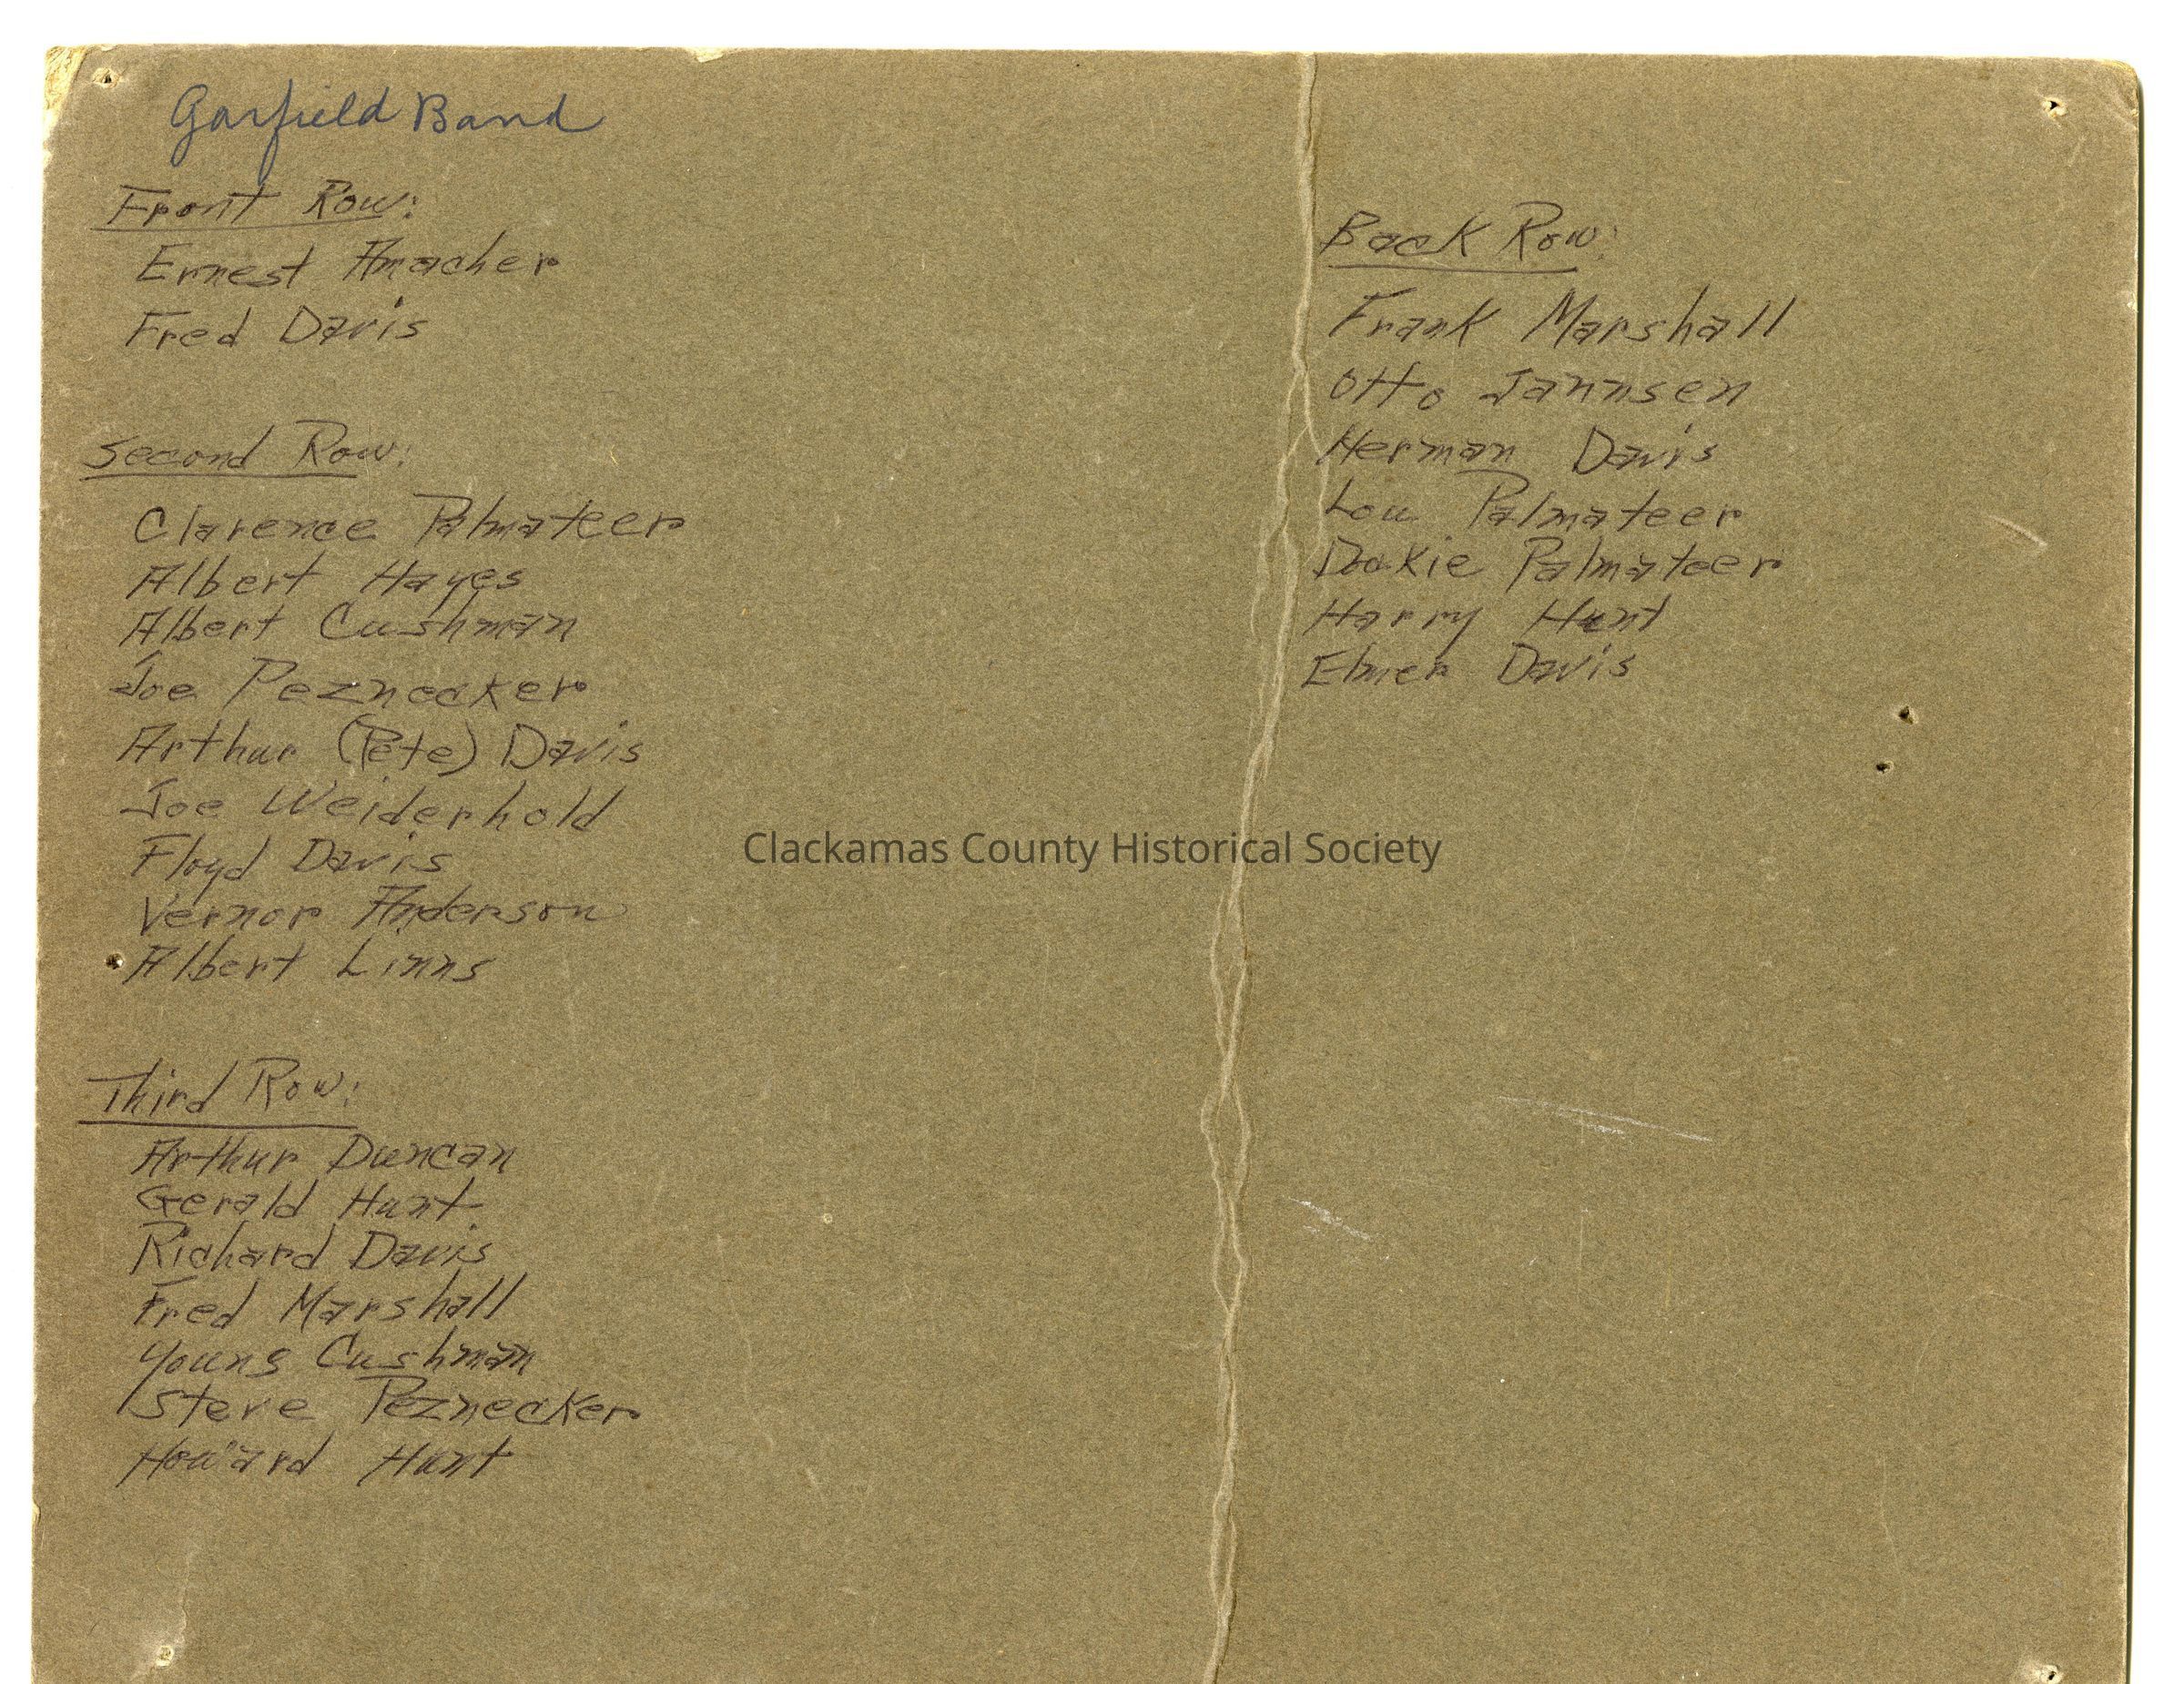 Garfield Band
Front Row:
Ernest Amacher
Fred Davis
Second Row:
Clarence Palmateer
Albert Hayes
Albert Cushman
Joe Peznecker
Arthur (Pete) Davis
Joe Weiderhold
Floyd Davis
Vernor Anderson
Albert Linns
Third Row:
Arthur Duncan
Gerald Hunt
Richard Davis
Fred Marshall
Young Cushman
Steve Peznecker
Howard Hunt
Back Row:
Frank Marshall
Otto Jannsen
Herman Davis
Lou Palmateer
Palmateer
Harry Hunt
Elmer Davis
Clackamas County Historical Society